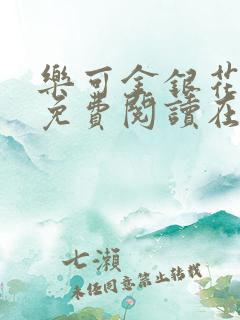 樂可金銀花
免費閱讀在
七瀨
未经同意禁止转载